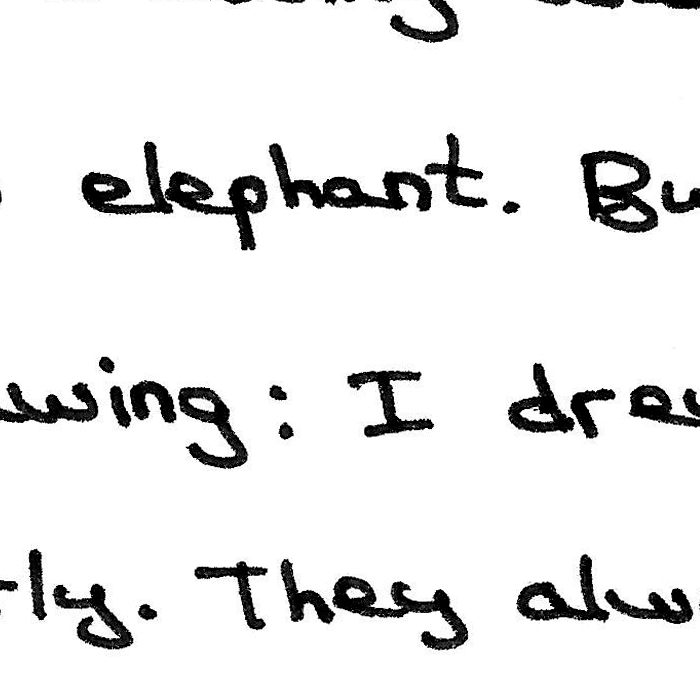 elephant. Bu
awing: I drew
tly. They alwa